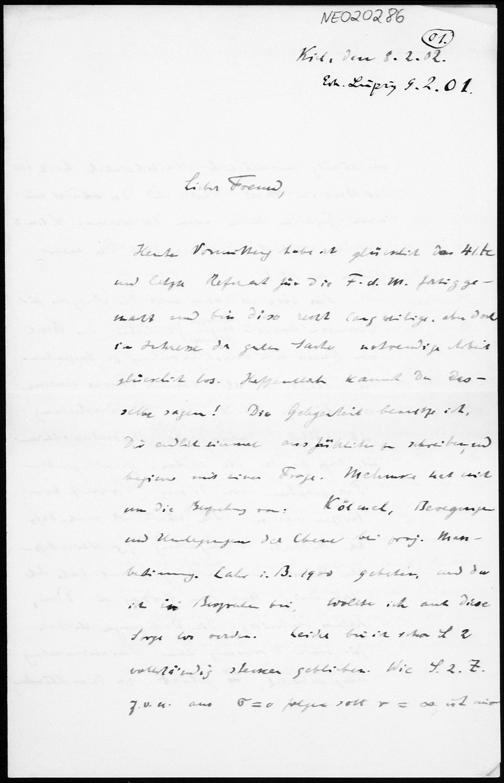 NE020286
01.
Kiel, den 8.2.02.
Erh. Leipzig 9.2.01.
Lieber Freund,
Heute Vormittag habe ich glücklich das 41te
und letzte Referat für die F. d. M. fertig ge-
macht und bin diese recht langweilige, aber doch
im Interesse der guten Sache notwendige Arbeit
glücklich los. Hoffentlich kannst Du das-
selbe sagen! Die Gelegenheit benutze ich,
Dir endlich einmal ausführlich zu schreiben, und
beginne mit einer Frage. Mehmke hat mich
um die Begutachtung von: Kölmel, Bewegungen
und Umlegungen der Ebene bei proj. Mass-
bestimmung. Lahr i. B. 1900 gebeten, und da
ich bei, wollte ich auch diese
Sorge los werden. Leider bin ich schon S. 2
vollständig stecken geblieben. Wie S. 2. Z.
7 v. u. aus σ = 0 folgen soll r = ∞, ist mir